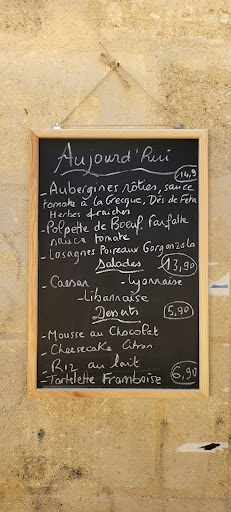 Aujourd'hui
14,9
- Aubergines rôties, sauce
tomate à la Grecque, Dés de Feta
Herbes fraiches
- Polpette de Boeuf, Farfalle
sauce tomate
- Lasagnes Poireaux Gorgonzola
Salades 13,90
- Caesar - Lyonnaise
- Libannaise
Desserts 5,90
- Mousse au Chocolat
- Cheesecake Citron
- Riz au lait
- Tartelette Framboise 6,90